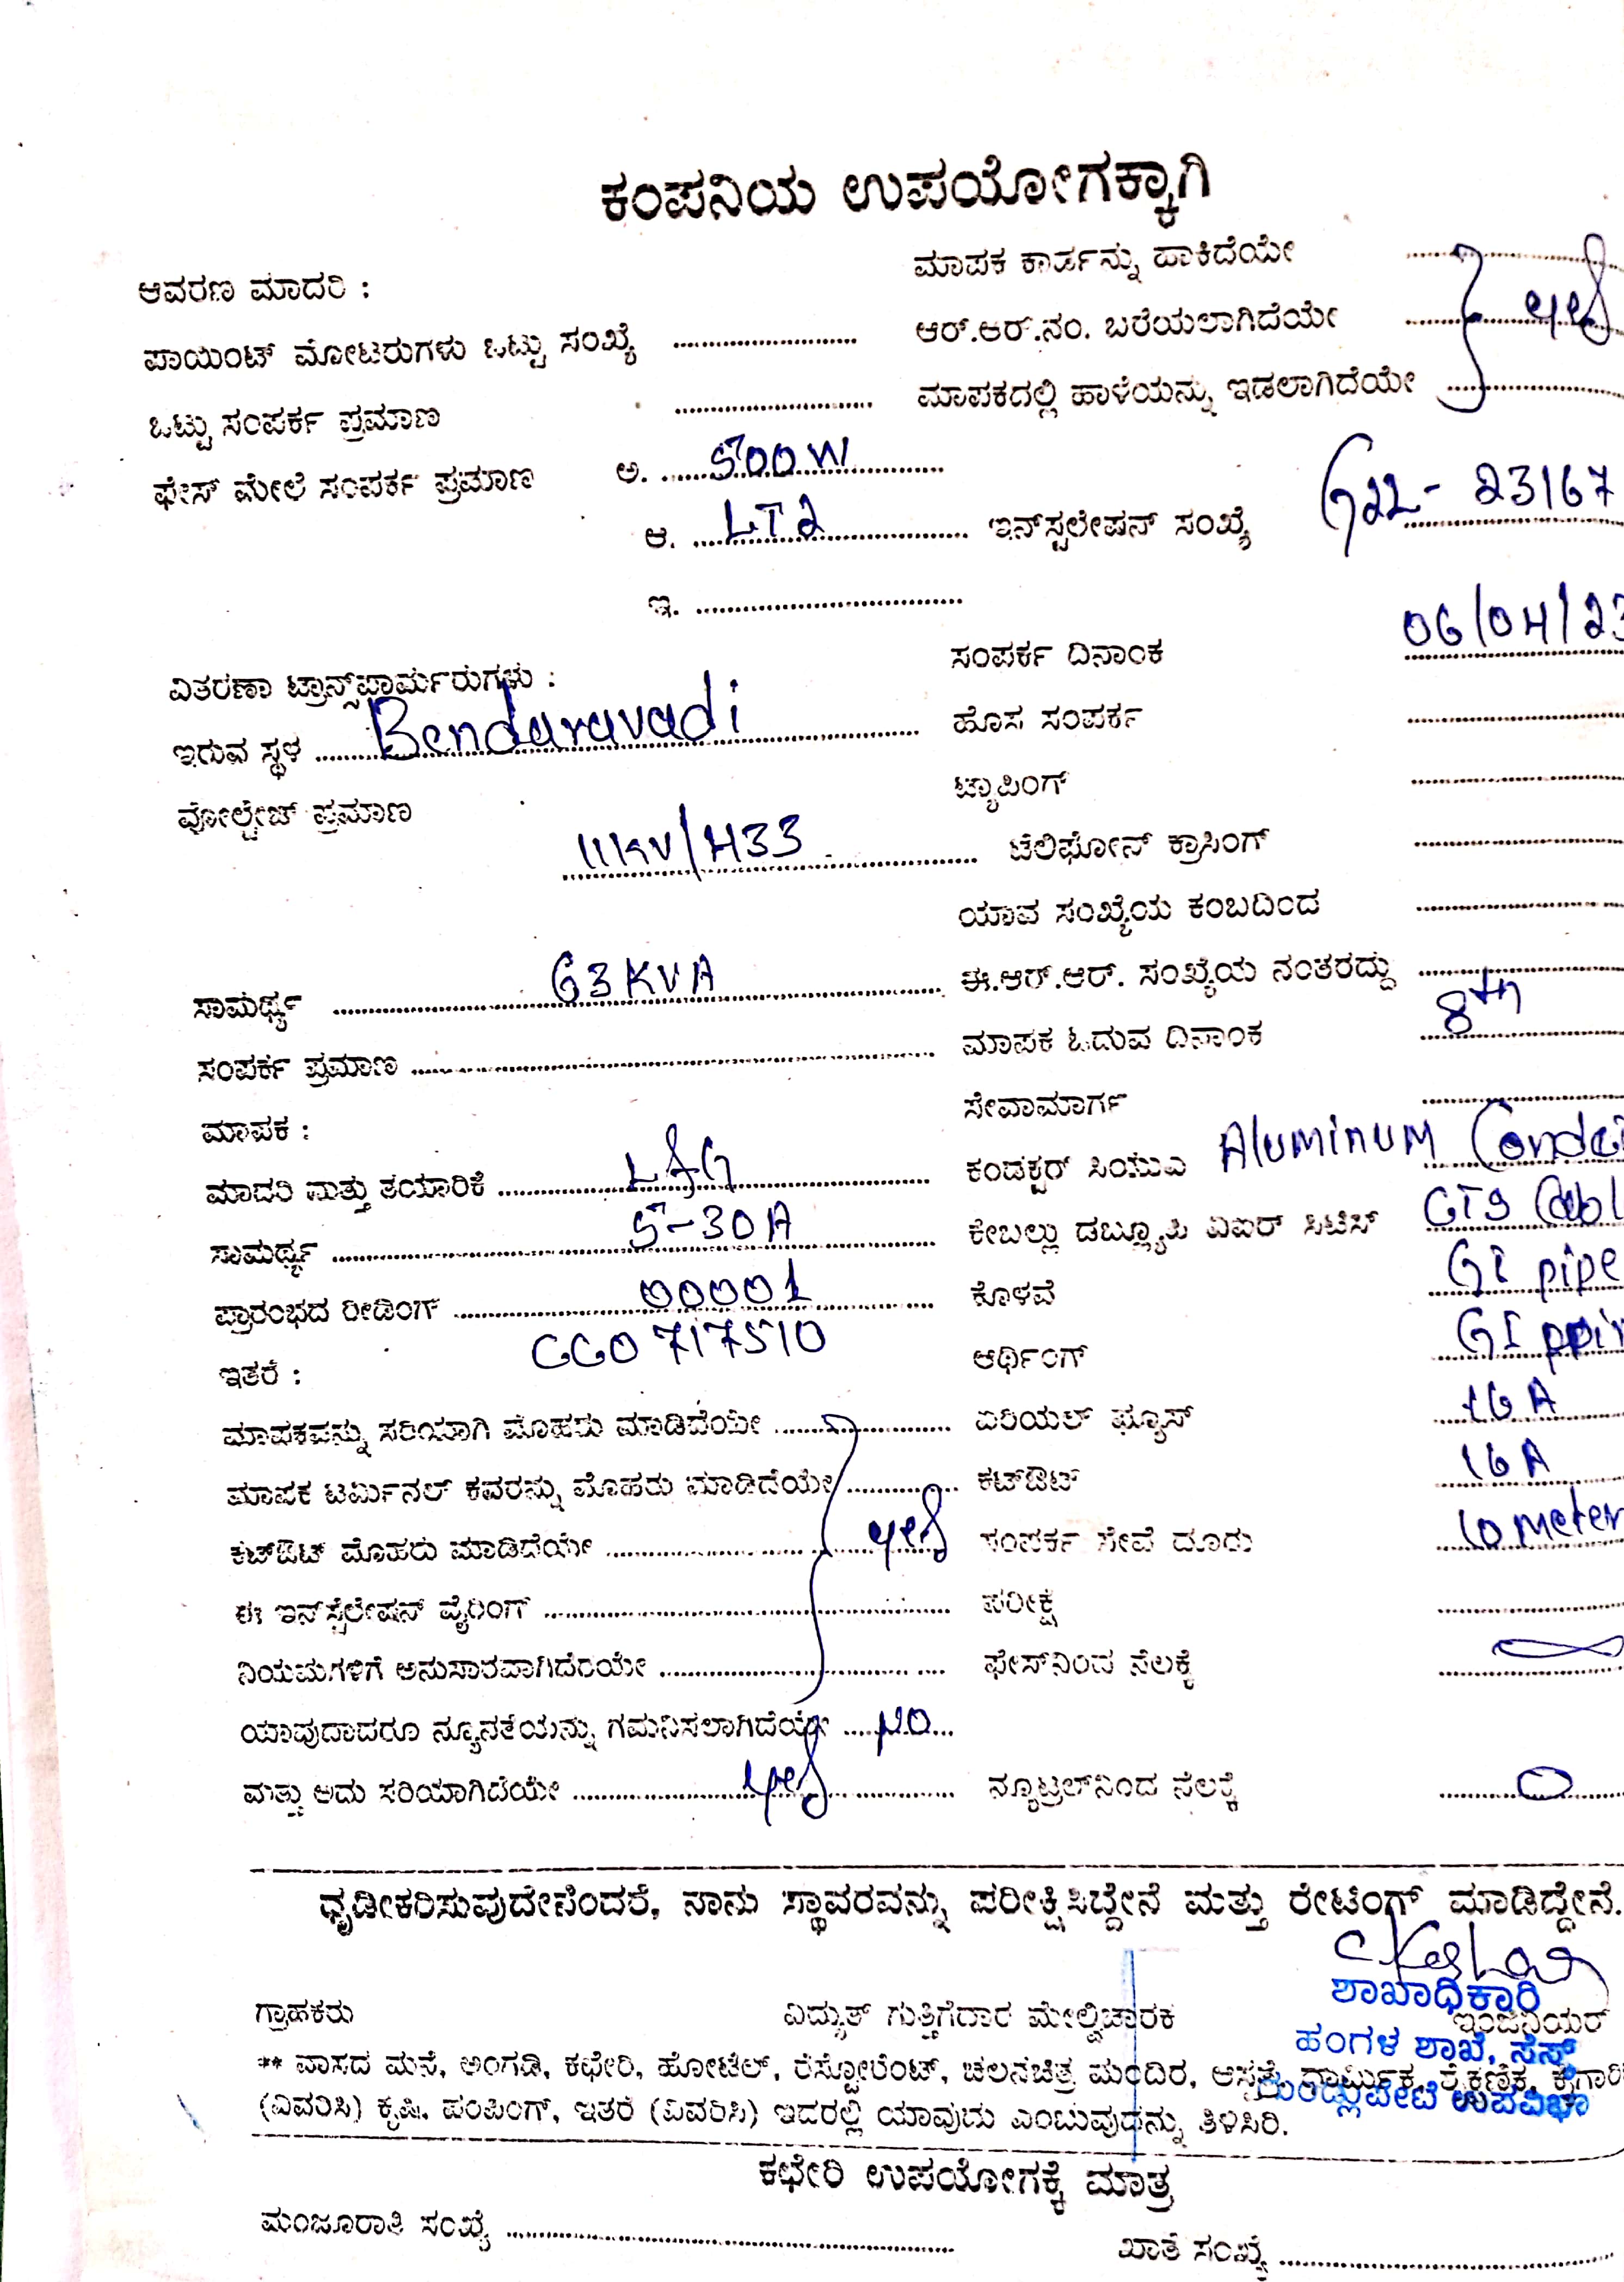 ಕಂಪನಿಯ ಉಪಯೋಗಕ್ಕಾಗಿ
ಆವರಣ ಮಾದರಿ :
ಮಾಪಕ ಕಾರ್ಡನ್ನು ಹಾಕಿದೆಯೇ
ಪಾಯಿಂಟ್ ಮೋಟರುಗಳು ಒಟ್ಟು ಸಂಖ್ಯೆ ..........
ಆರ್.ಆರ್.ನಂ. ಬರೆಯಲಾಗಿದೆಯೇ .......... yes
ಒಟ್ಟು ಸಂಪರ್ಕ ಪ್ರಮಾಣ ..........
ಮಾಪಕದಲ್ಲಿ ಹಾಳೆಯನ್ನು ಇಡಲಾಗಿದೆಯೇ ..........
ಫೇಸ್ ಮೇಲೆ ಸಂಪರ್ಕ ಪ್ರಮಾಣ ಅ. 500W
ಆ. LT2 ಇನ್‌ಸ್ಟಲೇಷನ್ ಸಂಖ್ಯೆ G22- 23167
ಇ. ..........
ಸಂಪರ್ಕ ದಿನಾಂಕ 06/04/23
ವಿತರಣಾ ಟ್ರಾನ್ಸ್‌ಫಾರ್ಮರುಗಳು :
ಇರುವ ಸ್ಥಳ Bendaravadi
ಹೊಸ ಸಂಪರ್ಕ ..........
ವೋಲ್ಟೇಜ್ ಪ್ರಮಾಣ
ಟ್ಯಾಪಿಂಗ್ ..........
11KV/433 ಟೆಲಿಫೋನ್ ಕ್ರಾಸಿಂಗ್ ..........
ಯಾವ ಸಂಖ್ಯೆಯ ಕಂಬದಿಂದ ..........
ಸಾಮರ್ಥ್ಯ 63KVA ಈ.ಆರ್.ಆರ್. ಸಂಖ್ಯೆಯ ನಂತರದ್ದು ..........
ಸಂಪರ್ಕ ಪ್ರಮಾಣ .......... ಮಾಪಕ ಓದುವ ದಿನಾಂಕ 8th
ಮಾಪಕ :
ಸೇವಾಮಾರ್ಗ ..........
ಮಾದರಿ ಮತ್ತು ತಯಾರಿಕೆ L&G ಕಂಡಕ್ಟರ್ ಸಿಯುಎ Aluminum
ಸಾಮರ್ಥ್ಯ 5-30A ಕೇಬಲ್ಲು ಡಬ್ಲ್ಯೂಪಿ ವಿಐರ್ ಸಿಟಿಸ್
ಪ್ರಾರಂಭದ ರೀಡಿಂಗ್ 00001 ಕೊಳವೆ GI pipe
ಇತರೆ : CC0717510 ಆರ್ಥಿಂಗ್ GI
ಮಾಪಕವನ್ನು ಸರಿಯಾಗಿ ಮೊಹರು ಮಾಡಿದೆಯೇ .......... ಏರಿಯಲ್ ಫ್ಯೂಸ್ 16A
ಮಾಪಕ ಟರ್ಮಿನಲ್ ಕವರನ್ನು ಮೊಹರು ಮಾಡಿದೆಯೇ .......... ಕಟ್‌ಔಟ್ 16A
ಕಟ್‌ಔಟ್ ಮೊಹರು ಮಾಡಿದೆಯೇ .......... yes ಸಂಪರ್ಕ ಸೇವೆ ದೂರು 10 meter
ಈ ಇನ್‌ಸ್ಟಲೇಷನ್ ವೈರಿಂಗ್ .......... ಪರೀಕ್ಷೆ ..........
ನಿಯಮಗಳಿಗೆ ಅನುಸಾರವಾಗಿದೆರಯೇ .......... ಫೇಸ್‌ನಿಂದ ನೆಲಕ್ಕೆ ..........
ಯಾವುದಾದರೂ ನ್ಯೂನತೆಯನ್ನು ಗಮನಿಸಲಾಗಿದೆಯೇ NO
ಮತ್ತು ಅದು ಸರಿಯಾಗಿದೆಯೇ yes ನ್ಯೂಟ್ರಲ್‌ನಿಂದ ನೆಲಕ್ಕೆ 0
ಧೃಡೀಕರಿಸುವುದೇನೆಂದರೆ, ನಾನು ಸ್ಥಾವರವನ್ನು ಪರೀಕ್ಷಿಸಿದ್ದೇನೆ ಮತ್ತು ರೇಟಿಂಗ್ ಮಾಡಿದ್ದೇನೆ.
ಶಾಖಾಧಿಕಾರಿ
ಗ್ರಾಹಕರು ವಿದ್ಯುತ್ ಗುತ್ತಿಗೆದಾರ ಮೇಲ್ವಿಚಾರಕ ಇಂಜಿನಿಯರ್
ಹಂಗಳ ಶಾಖೆ, ಸೆಸ್ಕ್
** ವಾಸದ ಮನೆ, ಅಂಗಡಿ, ಕಛೇರಿ, ಹೋಟೆಲ್, ರೆಸ್ಟೋರೆಂಟ್, ಚಲನಚಿತ್ರ ಮಂದಿರ, ಆಸ್ಪತ್ರೆ, ಧಾರ್ಮಿಕ, ಶೈಕ್ಷಣಿಕ,
ಗುಂಡ್ಲುಪೇಟೆ ಉಪವಿಭಾ
(ವಿವರಿಸಿ) ಕೃಷಿ, ಪಂಪಿಂಗ್, ಇತರೆ (ವಿವರಿಸಿ) ಇದರಲ್ಲಿ ಯಾವುದು ಎಂಬುವುದನ್ನು ತಿಳಿಸಿರಿ.
ಕಛೇರಿ ಉಪಯೋಗಕ್ಕೆ ಮಾತ್ರ
ಮಂಜೂರಾತಿ ಸಂಖ್ಯೆ ..........
ಖಾತೆ ಸಂಖ್ಯೆ ..........